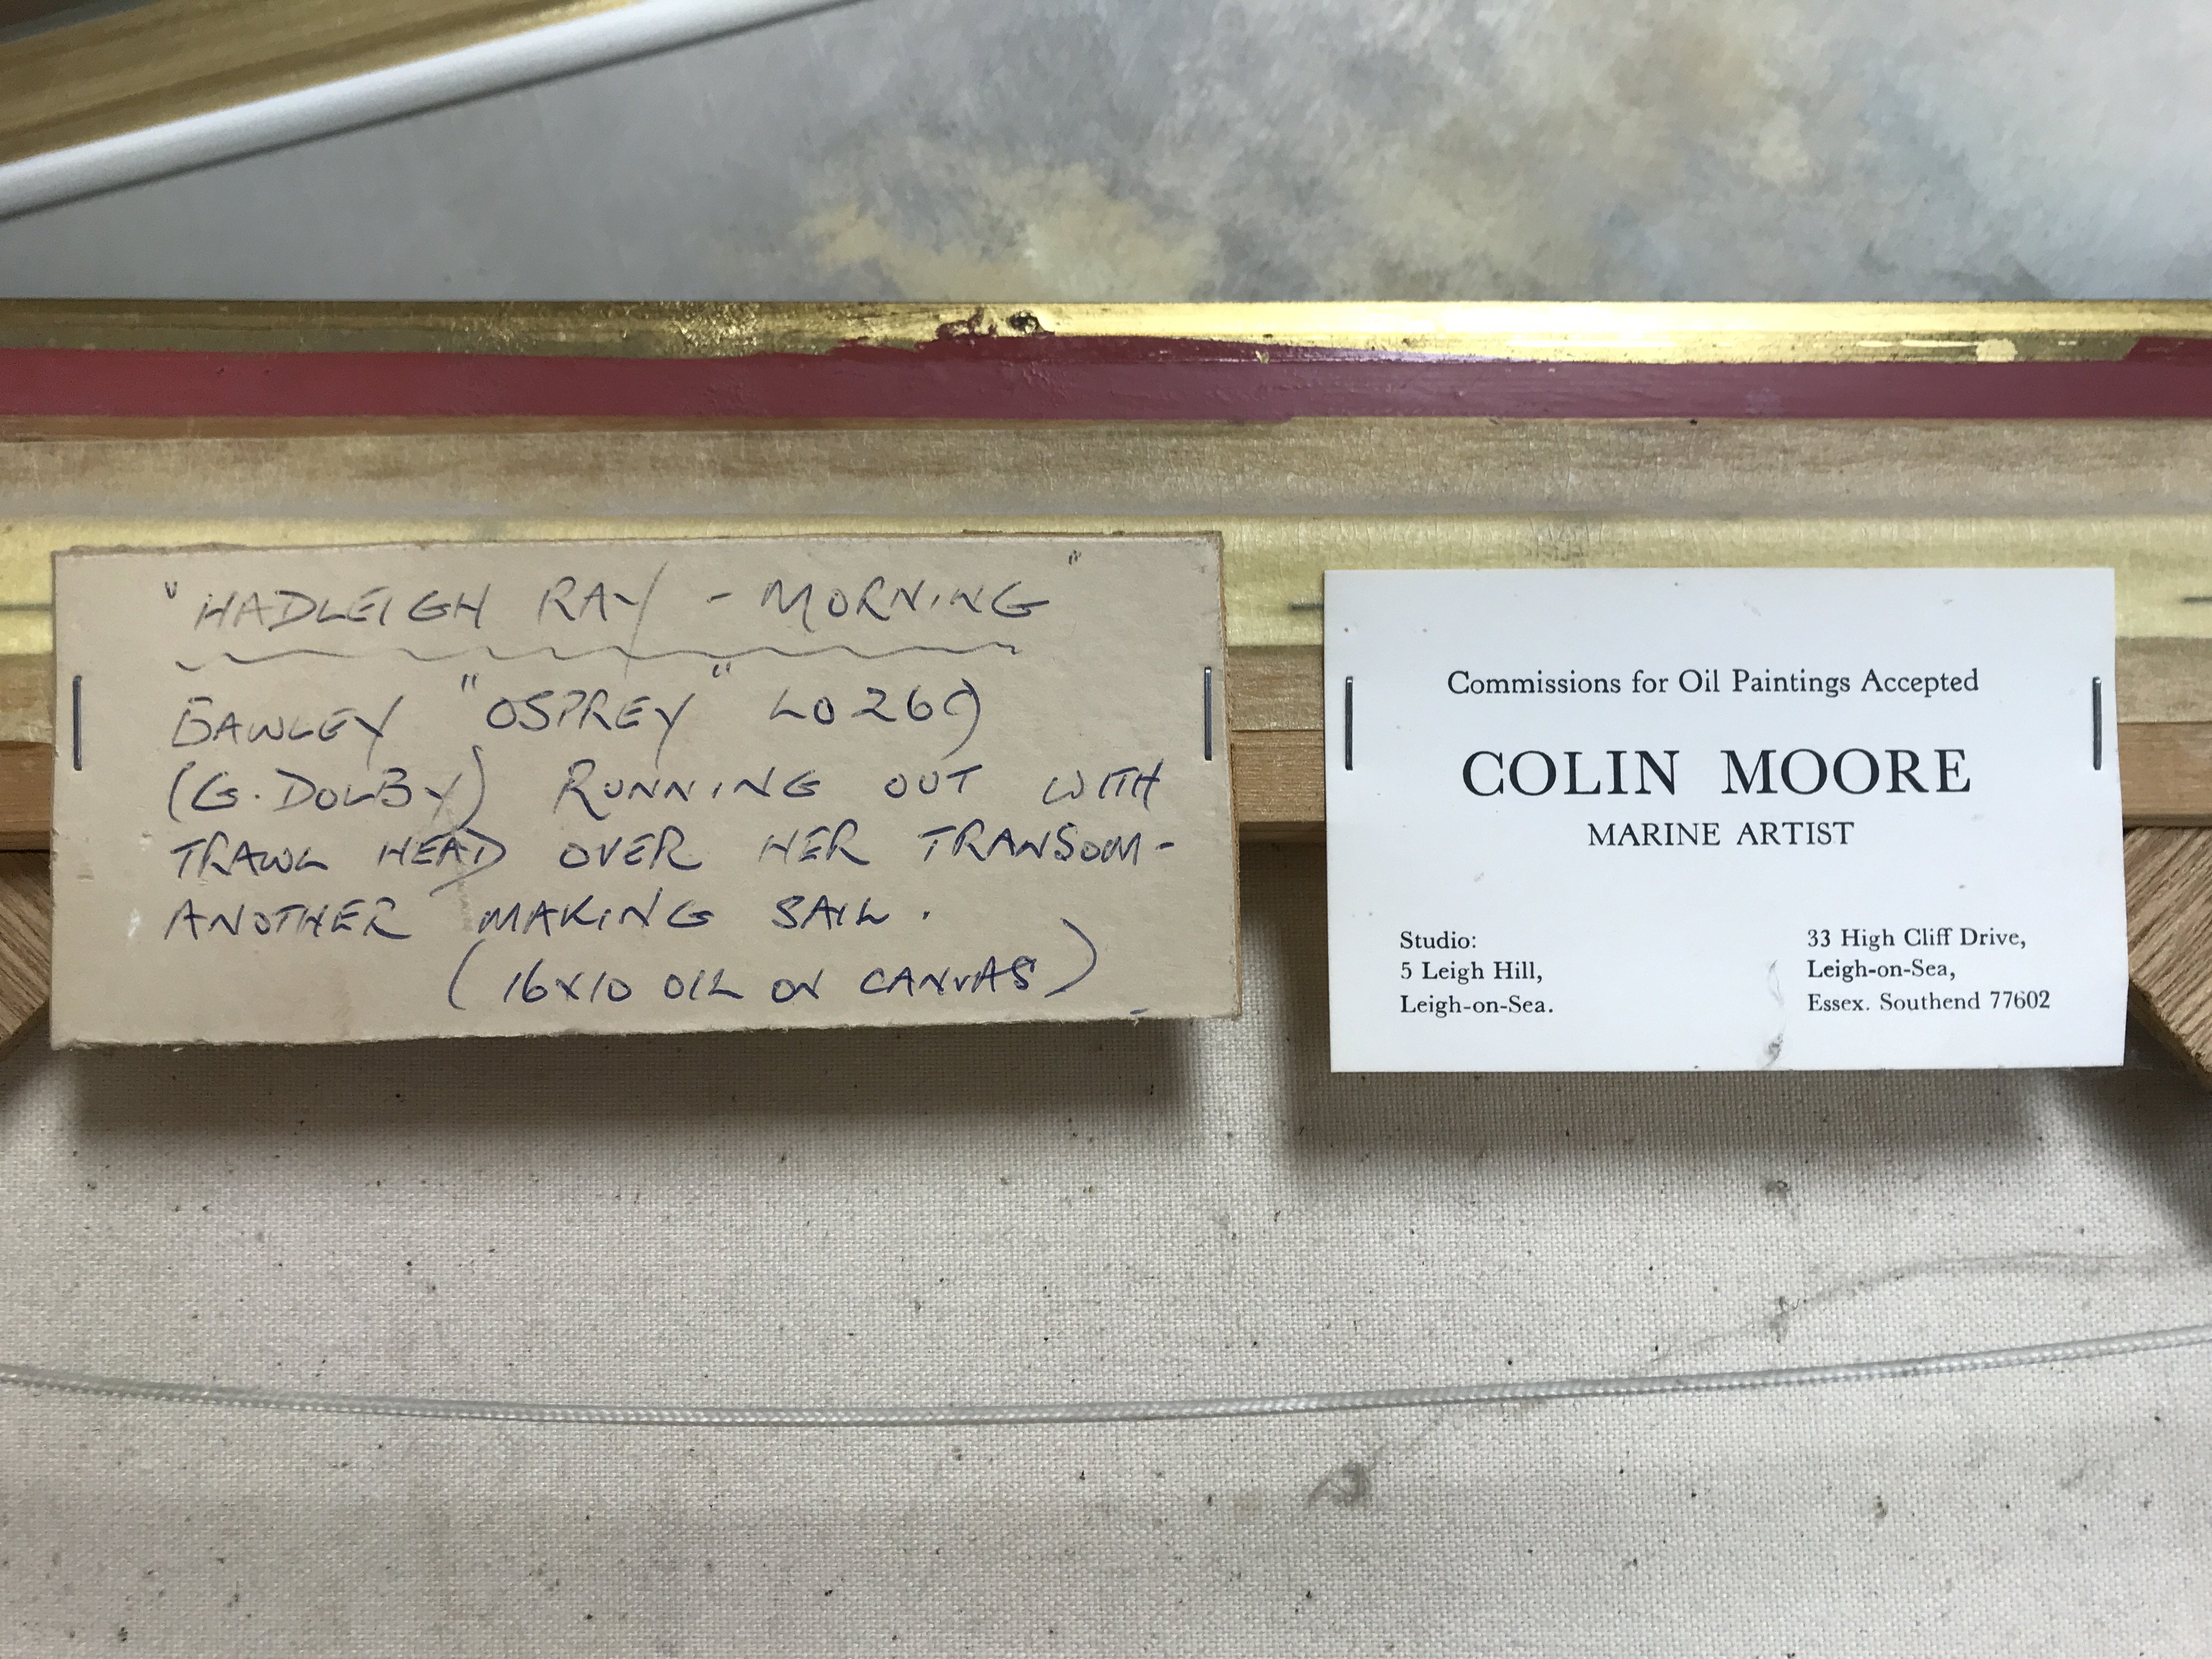 "HADLEIGH RAY - MORNING"
BAWLEY "OSPREY" LO 269
(G. DOLBY) RUNNING OUT WITH
TRAWL HEAD OVER HER TRANSOM -
ANOTHER MAKING SAIL.
(16X10 OIL ON CANVAS)
Commissions for Oil Paintings Accepted
COLIN MOORE
MARINE ARTIST
Studio:
5 Leigh Hill,
Leigh-on-Sea.
33 High Cliff Drive,
Leigh-on-Sea,
Essex. Southend 77602